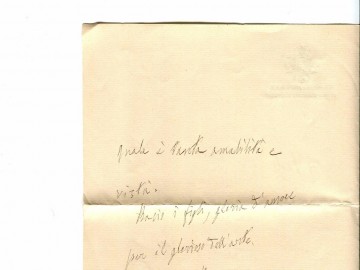 quale è tanta amabilità e
vista.
Bacio i figli, gloria d'amore
per il glorioso dell'arte.